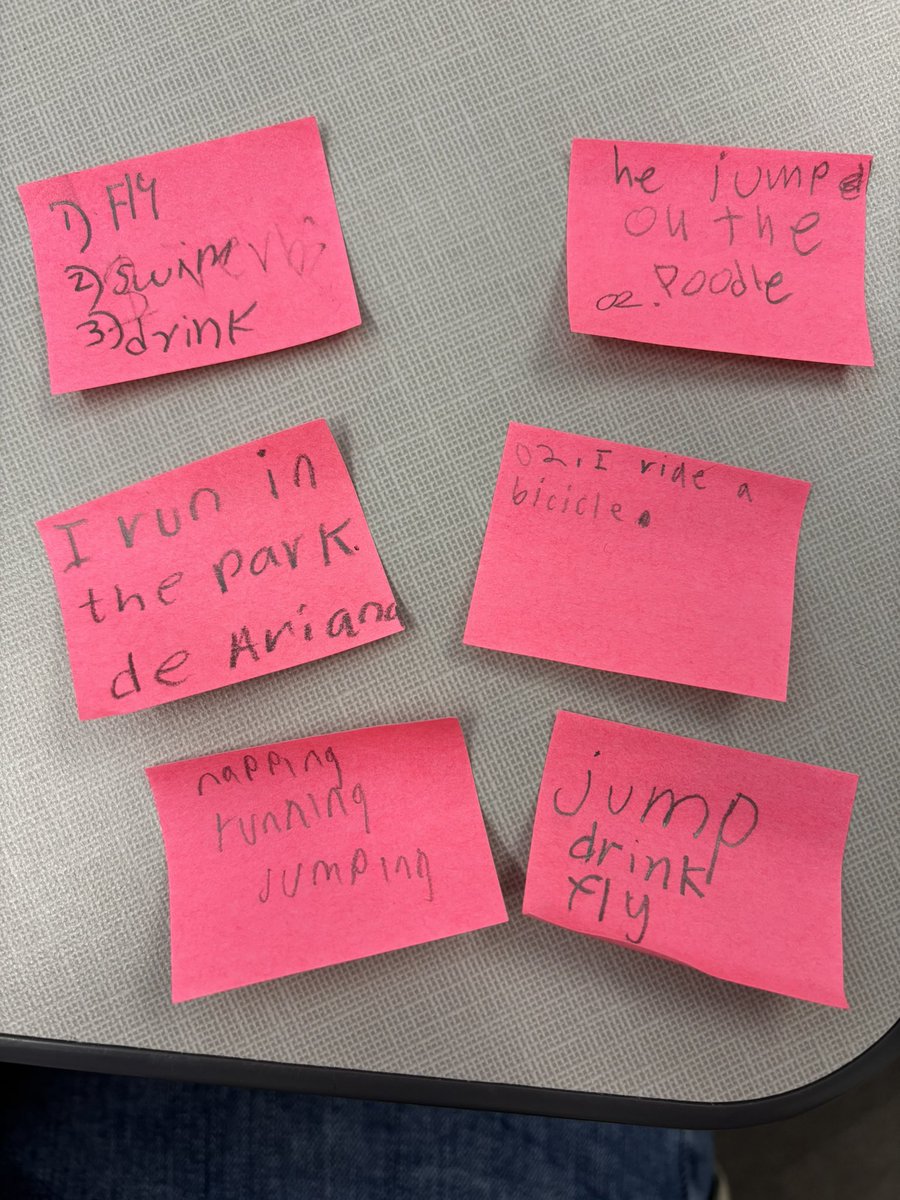 1) Fly
2) Swim
3) drink
he jumped
on the
02. Poodle
I run in
the park.
de Ariana
02. I ride a
bicicle.
napping
running
jumping
jump
drink
fly